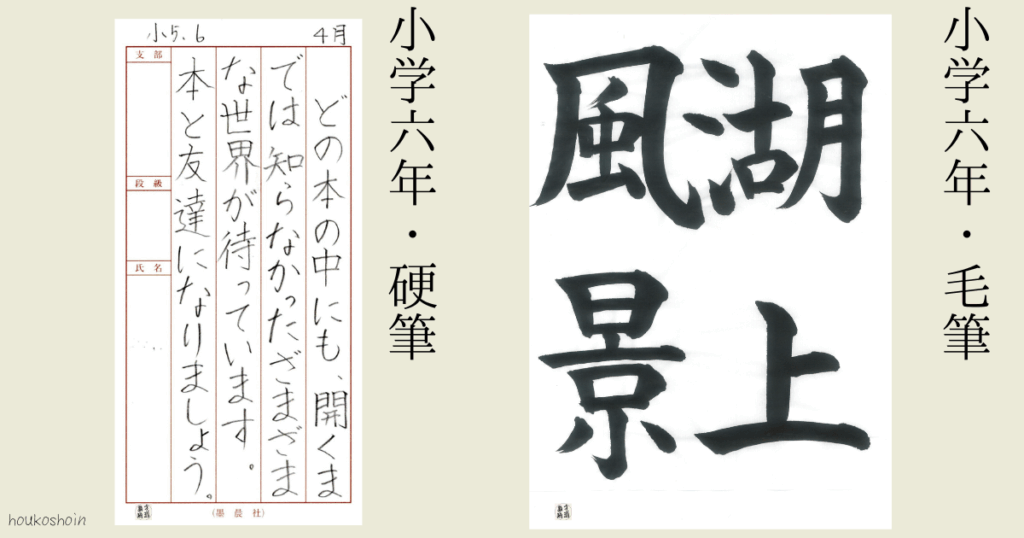 小学六年・毛筆
湖上
風景
小学六年・硬筆
4月
小5.6
どの本の中にも、開くま
では知らなかったさまざま
な世界が待っています。
本と友達になりましょう。
支部
段級
氏名
(墨晨社)
houkoshoin